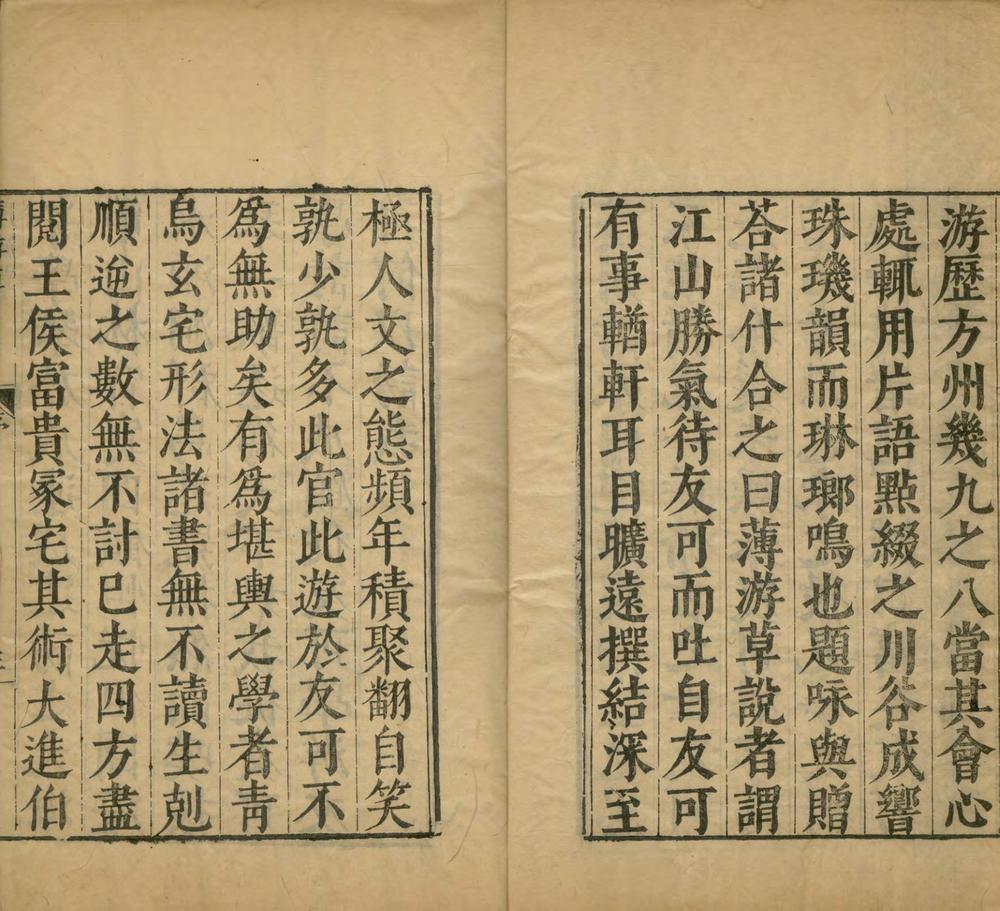 游歷方州幾九之八當其會心
處輒用片語點綴之川谷成響
珠璣韻而琳瑯鳴也題咏與贈
荅諸什合之曰薄游草說者謂
江山勝氣待友可而吐自友可
有事輶軒耳目曠遠撰結深至
極人文之態頻年積聚翻自笑
孰少孰多此官此遊於友可不
爲無助矣有爲堪輿之學者青
烏玄宅形法諸書無不讀生剋
順逆之數無不討已走四方盡
閱王侯富貴冢宅其術大進伯